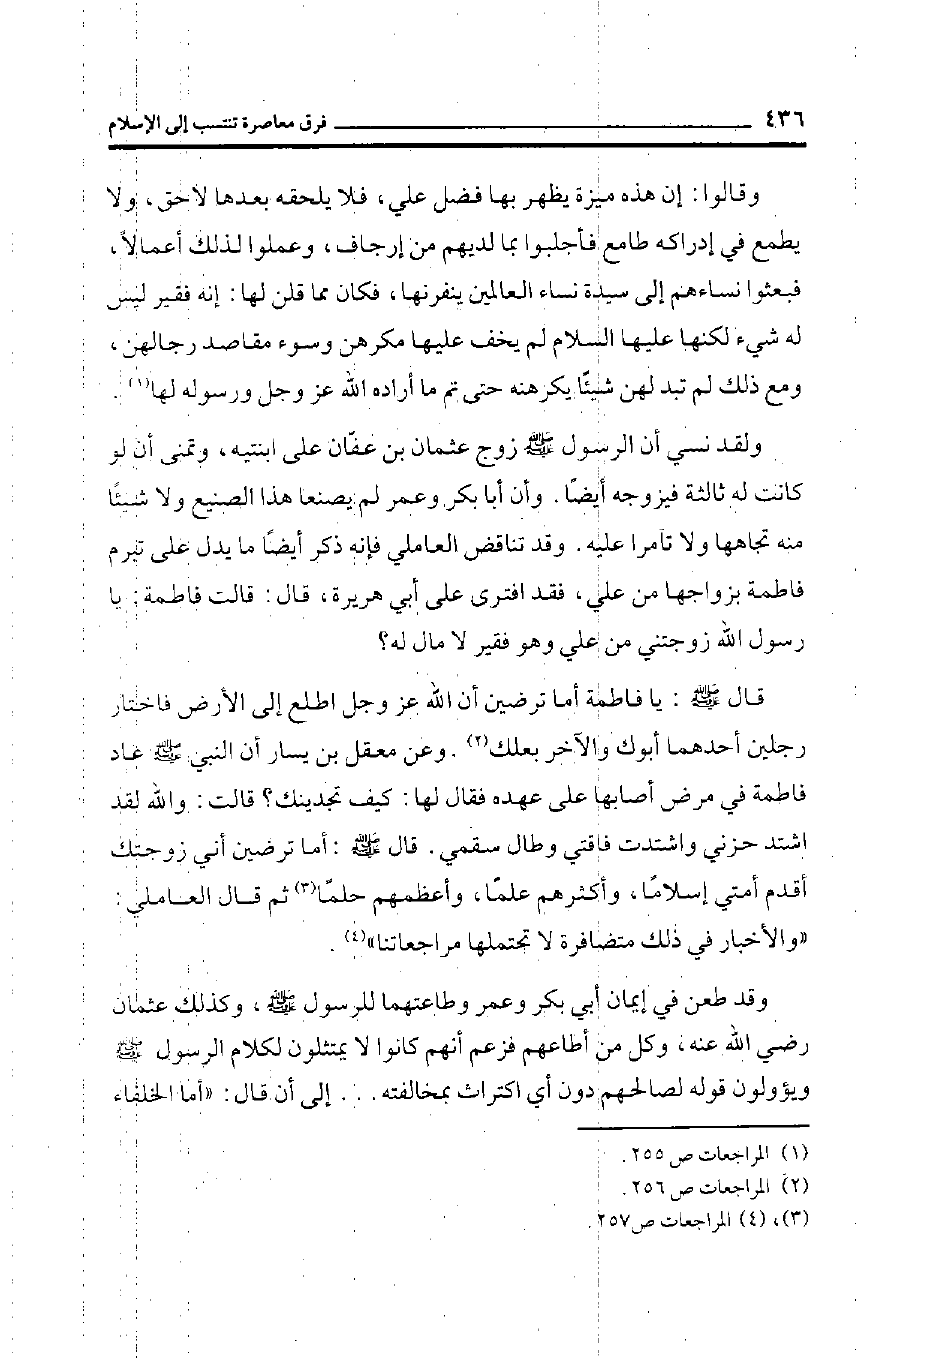 ٤٣٦ فرق معاصرة تنتسب إلى الإسلام
وقالوا: إن هذه ميزة يظهر بها فضل علي، فلا يلحقه بعدها لاحق، ولا
يطمع في إدراكه طامع فأجلبوا بما لديهم من إرجاف، وعملوا لذلك أعمالاً،
فبعثوا نساءهم إلى سيدة نساء العالمين ينفرنها، فكان مما قلن لها: إنه فقير ليس
له شيء لكنها عليها السلام لم يخف عليها مكرهن وسوء مقاصد رجالهن،
ومع ذلك لم تبد لهن شيئًا يكرهنه حتى تم ما أراده الله عز وجل ورسوله لها(١).
ولقد نسي أن الرسول ﷺ زوج عثمان بن عفّان على ابنتيه، وتمنى أن لو
كانت له ثالثة فيزوجه أيضًا. وأن أبا بكر وعمر لم يصنعا هذا الصنيع ولا شيئًا
منه تجاهها ولا تآمرا عليه. وقد تناقض العاملي فإنه ذكر أيضًا ما يدل على تبرم
فاطمة بزواجها من علي، فقد افترى على أبي هريرة، قال: قالت فاطمة: يا
رسول الله زوجتني من علي وهو فقير لا مال له؟
قال ﷺ : يا فاطمة أما ترضين أن الله عز وجل اطلع إلى الأرض فاختار
رجلين أحدهما أبوك والآخر بعلك(٢). وعن معقل بن يسار أن النبي ﷺ عاد
فاطمة في مرض أصابها على عهده فقال لها: كيف تجدينك؟ قالت: والله لقد
اشتد حزني واشتدت فاقتي وطال سقمي. قال ﷺ : أما ترضين أني زوجتك
أقدم أمتي إسلامًا، وأكثرهم علمًا، وأعظمهم حلمًا(٣) ثم قال العاملي:
«والأخبار في ذلك متضافرة لا تحتملها مراجعاتنا»(٤).
وقد طعن في إيمان أبي بكر وعمر وطاعتهما للرسول ﷺ ، وكذلك عثمان
رضي الله عنه، وكل من أطاعهم فزعم أنهم كانوا لا يمتثلون لكلام الرسول ﷺ
ويؤولون قوله لصالحهم دون أي اكتراث بمخالفته. . . إلى أن قال: «أما الخلفاء
(١) المراجعات ص ٢٥٥.
(٢) المراجعات ص ٢٥٦.
(٣)، (٤) المراجعات ص٢٥٧.